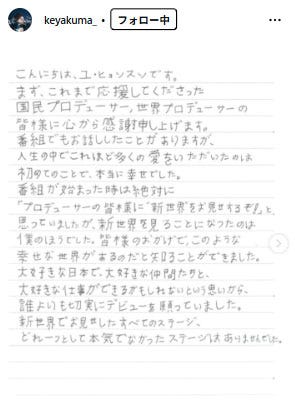 keyakuma_ • フォロー中
こんにちは、ユ・ヒョンスンです。
まず、これまで応援してくださった
国民プロデューサー、世界プロデューサーの
皆様に心から感謝申し上げます。
番組でもお話ししたことがありますが、
人生の中でこれほど多くの愛をいただいたのは
初めてのことで、本当に幸せでした。
番組が始まった時は絶対に
「プロデューサーの皆様に「新世界をお見せするぞ!」と
思っていましたが、新世界を見ることになったのは
僕のほうでした。皆様のおかげで、このような
幸せな世界があるのだと知ることができました。
大好きな日本で、大好きな仲間たちと、
大好きな仕事ができるかもしれないという思いから、
誰よりも切実にデビューを願っていました。
新世界でお見せしたすべてのステージ、
どれ一つとして本気でなかったステージはありませんでした。